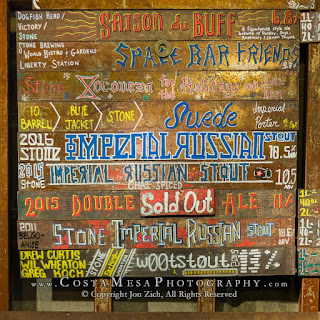 DOGFISH HEAD/
VICTORY/
STONE
SAISON du BUFF 6.8%
STONE BREWING
WORLD BISTRO & GARDENS
LIBERTY STATION
SPACE BAR FRIENDS
Stone Xocoveza
10 BARREL BLUE JACKET STONE Suede Imperial Porter
2016 STONE IMPERIAL RUSSIAN STOUT 10.5%
2015 STONE IMPERIAL RUSSIAN STOUT 10.5 ABV
CHAI SPICED
2015 DOUBLE Sold Out ALE 11%
2011 STONE IMPERIAL RUSSIAN STOUT
DREW CURTIS
WIL WHEATON
GREG KOCH
W00tstout
www.CostaMesaPhotography.com
© Copyright Jon Zich, All Rights Reserved